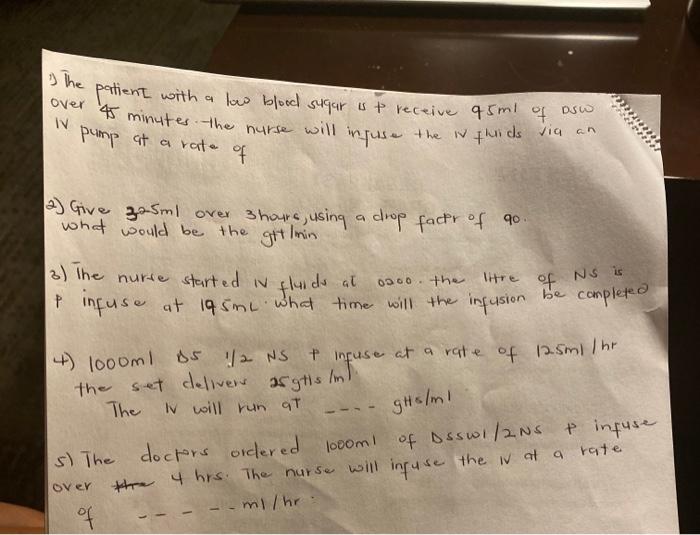 1) The patient with a low blood sugar is to receive 95ml of D5W
over 45 minutes. the nurse will infuse the IV fluids via an
IV pump at a rate of
2) Give 325ml over 3 hours, using a drop factor of 90.
what would be the gtt/min
3) The nurse started IV fluids at 0200. the litre of NS is
to infuse at 195mL. what time will the infusion be completed
4) 1000ml D5 1/2 NS to infuse at a rate of 125ml/hr
the set delivers 25gtts/ml
The IV will run at ---- gtts/ml
5) The doctors ordered 1000ml of D5SW1/2NS to infuse
over 4 hrs. The nurse will infuse the IV at a rate
of ----- ml/hr.